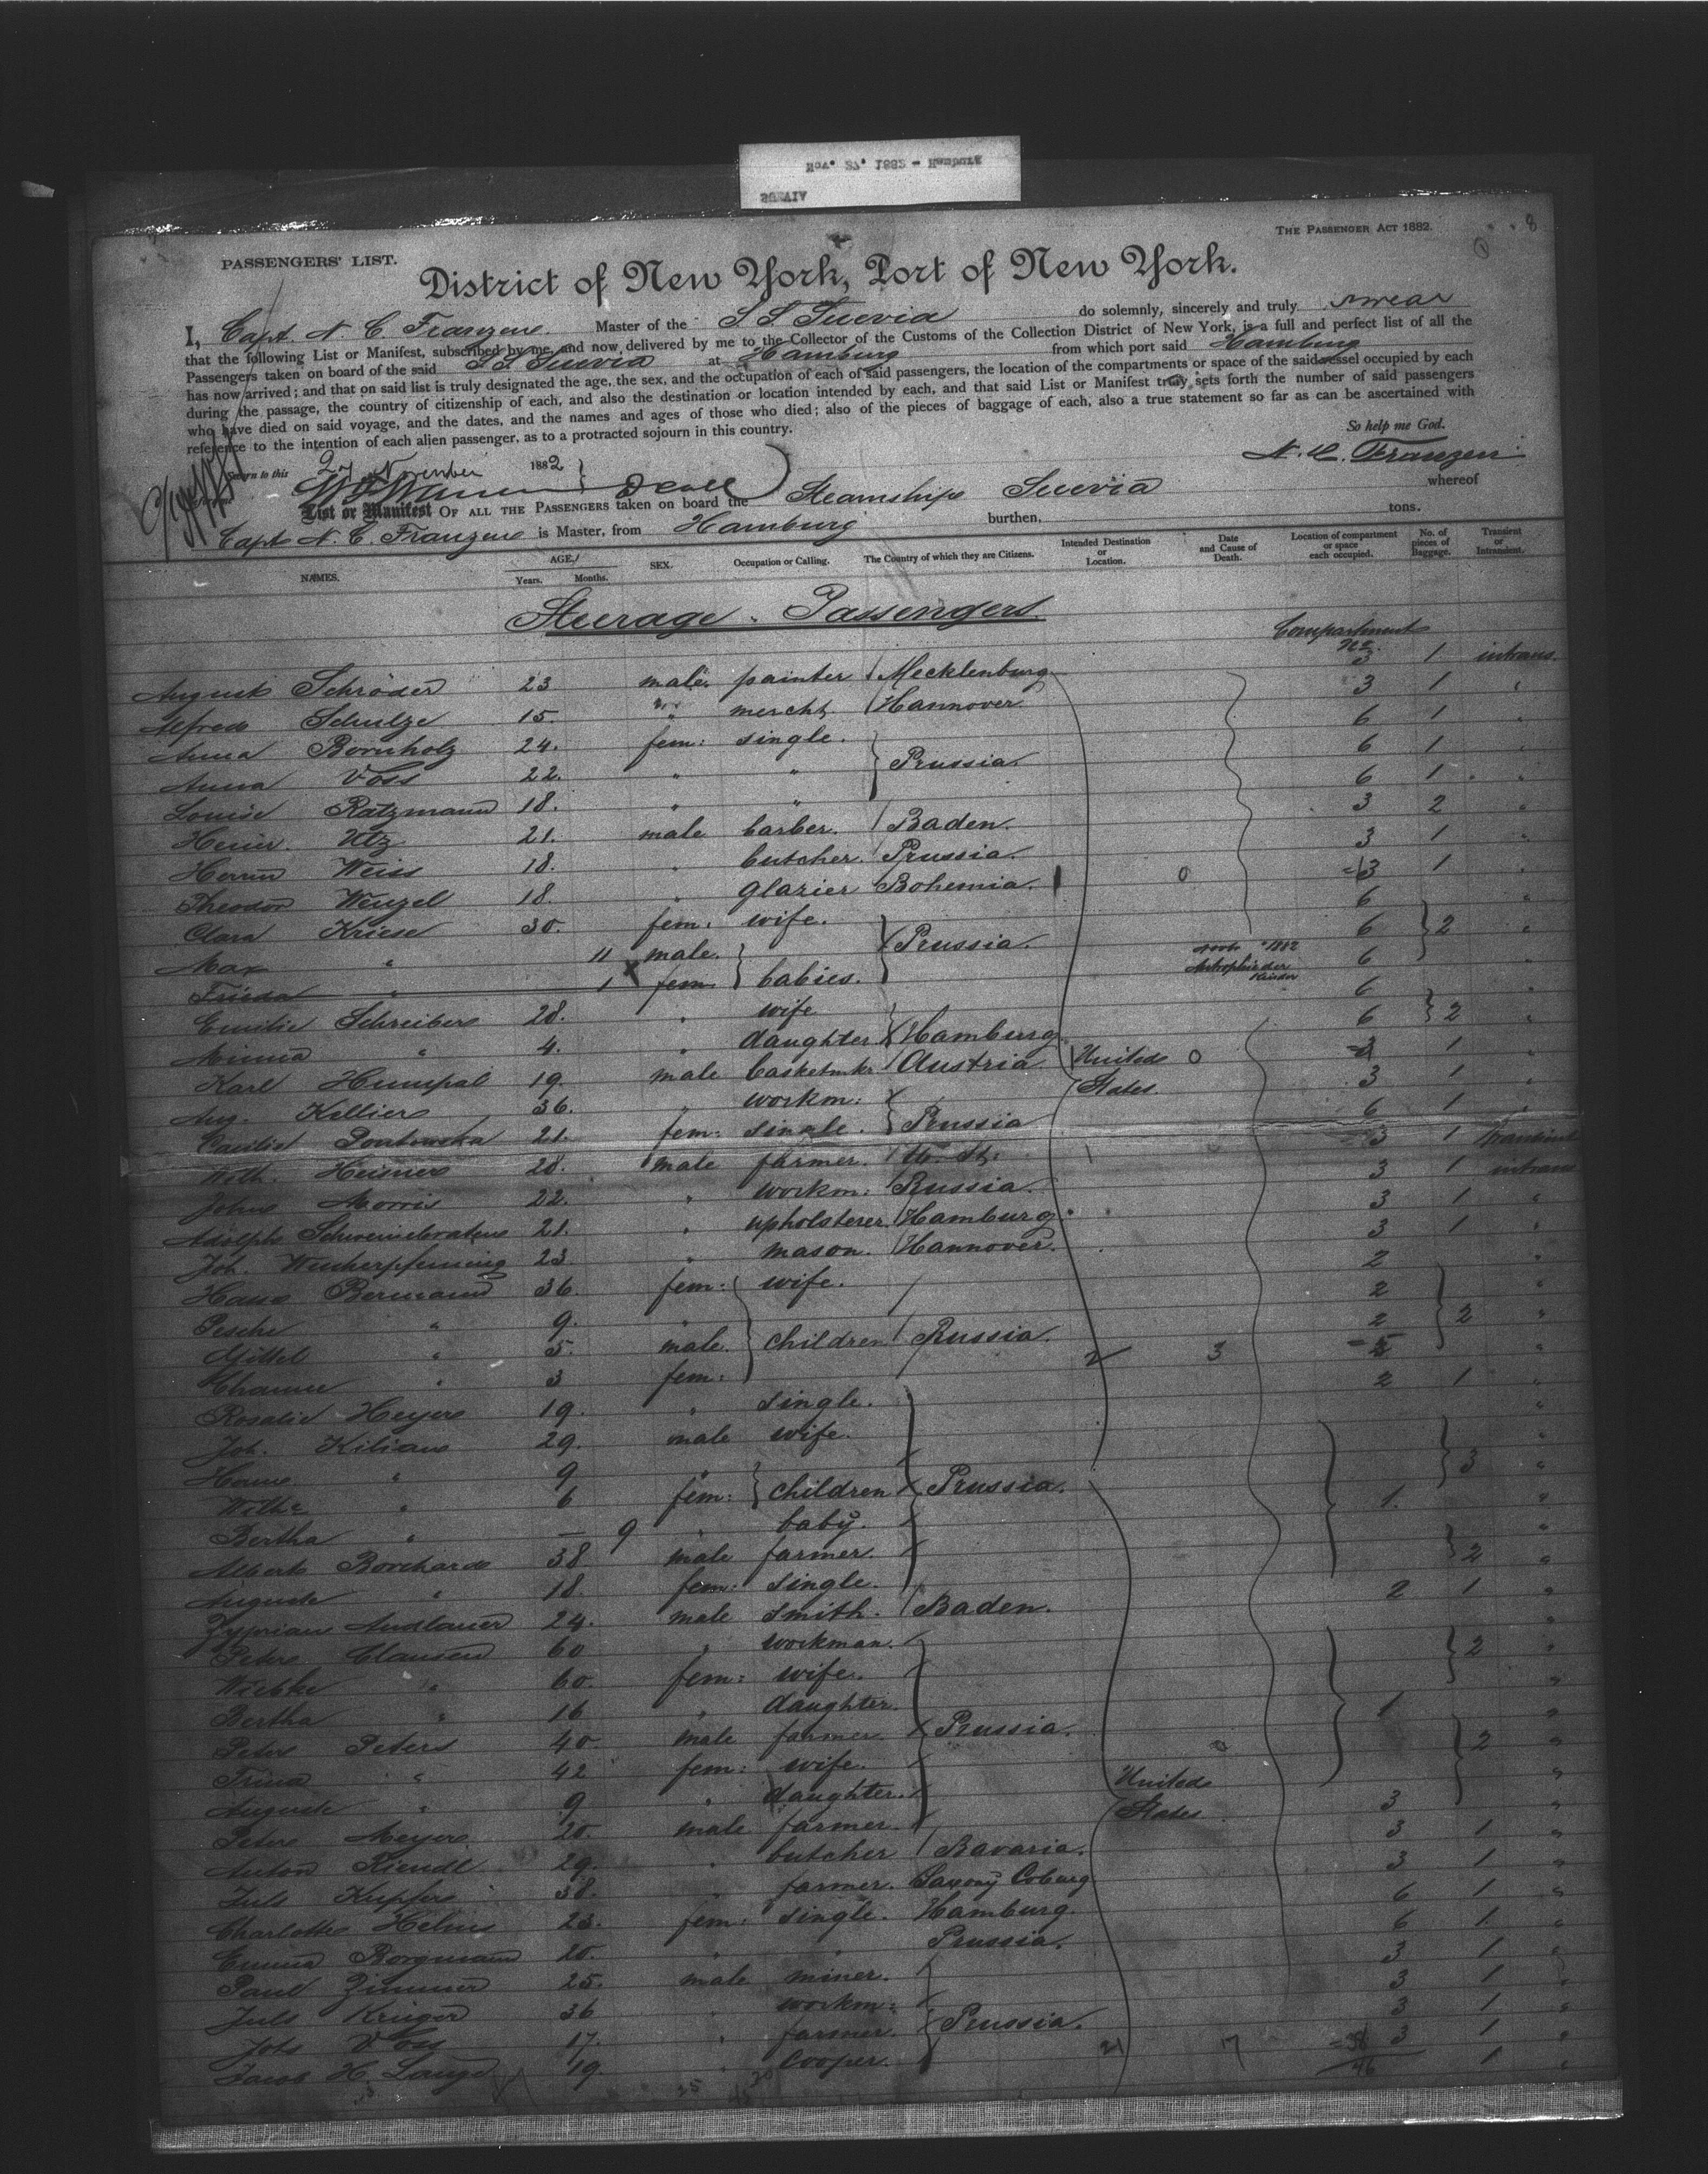 Nov. 27, 1882 - Hamburg
SUEVIA
THE PASSENGER ACT 1882.
8
PASSENGERS' LIST.
District of New York, Port of New York.
I, Capt. N. C. Franzen Master of the S. S. Suevia do solemnly, sincerely and truly swear
that the following List or Manifest, subscribed by me, and now delivered by me to the Collector of the Customs of the Collection District of New York, is a full and perfect list of all the
Passengers taken on board of the said S. S. Suevia at Hamburg from which port said Hamburg
has now arrived; and that on said list is truly designated the age, the sex, and the occupation of each of said passengers, the location of the compartments or space of the said vessel occupied by each
during the passage, the country of citizenship of each, and also the destination or location intended by each, and that said List or Manifest truly sets forth the number of said passengers
who have died on said voyage, and the dates, and the names and ages of those who died; also of the pieces of baggage of each, also a true statement so far as can be ascertained with
reference to the intention of each alien passenger, as to a protracted sojourn in this country.
So help me God.
Sworn to this 27 November 1882
N. C. Franzen
List or Manifest OF ALL THE PASSENGERS taken on board the Steamship Suevia whereof
Capt. N. C. Franzen is Master, from Hamburg burthen, tons.
NAMES. AGE. Years. Months. SEX. Occupation or Calling. The Country of which they are Citizens. Intended Destination or Location. Date and Cause of Death. Location of compartment or space each occupied. No. of pieces of Baggage. Transient or Intransient.
Steerage Passengers
Compartment
August Schröder 23 male painter Mecklenburg 3 1 intrans.
Alfred Schulze 15. " mercht. Hannover 3 1 "
Anna Bornholz 24. fem: single. 6 1 "
Anna Voss 22. " " Prussia. 6 1 "
Louise Ratzmann 18. " " 6 1 "
Heinr. Utz 21. male barber. Baden. 3 2 "
Herm Weiss 18. " butcher. Prussia. 3 1 "
Theodor Wenzel 18. " glazier Bohemia. 0 3 1 "
Clara Kriese 30. fem: wife. 6 "
Max " 11 male. Prussia. 6 2 "
Frieda " 1 fem. babies. 6
Emilie Schreiber 28. " wife 6 "
Minna " 4. " daughter Hamburg 6 2 "
Karl Humpal 19. male basketmkr Austria United 0 1 "
Aug. Kellier 36. " workm: States. 3 1 "
Cäcilie 21. fem: single. Prussia 6 1 "
Wilh. Heiner 28. male farmer. U. St. 3 1 transient
John Morris 22. " workm: Russia. 3 1 intrans
Adolph 21. " upholsterer Hamburg. 3 1 "
Joh. 23 " mason. Hannover. 3 1 "
Hane Bermann 36. fem: wife. 2 "
Pesche " 9. " 2 "
Mittel " 5. male. children Russia. 2 2 "
Channe " 3 fem: 2 3 "
Rosalie Heyer 19. " single. 2 1 "
Joh. Kilian 29. male wife. "
Hanne " 9 " 3 "
Wilhe " 6 fem: children Prussia. 1. "
Bertha " — 9 " baby. "
Albert Borchardt 38 male farmer. 2 "
Auguste " 18 fem: single. "
Zyprian 24. male smith. Baden. 2 1 "
Peter Clausen 60 " workman. "
Wiebke " 60. fem: wife. 2 "
Bertha " 16 " daughter. "
Peter Peters 40. male farmer. Prussia. 1 "
Trina " 42 fem: wife. United 2 "
Auguste " 9 " daughter. States "
Peter Meyer 20. male farmer. 3 1 "
Anton Riendl 29. " butcher Bavaria. 3 1 "
Juls Kupfer 38. " farmer. Saxony Coburg 3 1 "
Charlotte Helms 23. fem: single. Hamburg. 6 1 "
Emma Borgmann 20. " " Prussia. 6 1. "
Paul Zimmer 25. male miner. 3 1 "
Juls Krüger 36 " workm: 3 1 "
Johs Voss 17. " farmer. Prussia. 3 1 "
Jacob H. Lange 19. " cooper. 3 1 "